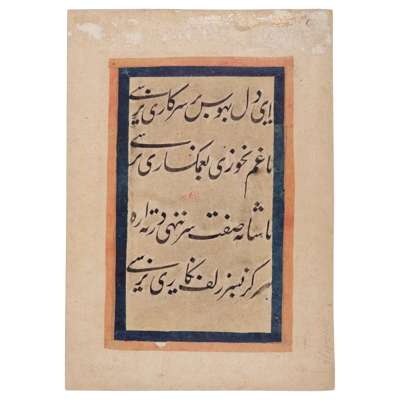 ای دل بهوس بر سر کاری نرسی
تا غم نخوری بغمگساری نرسی
تا شانه صفت سر ننهی در ته اره
هرگز بسر زلف نگاری نرسی